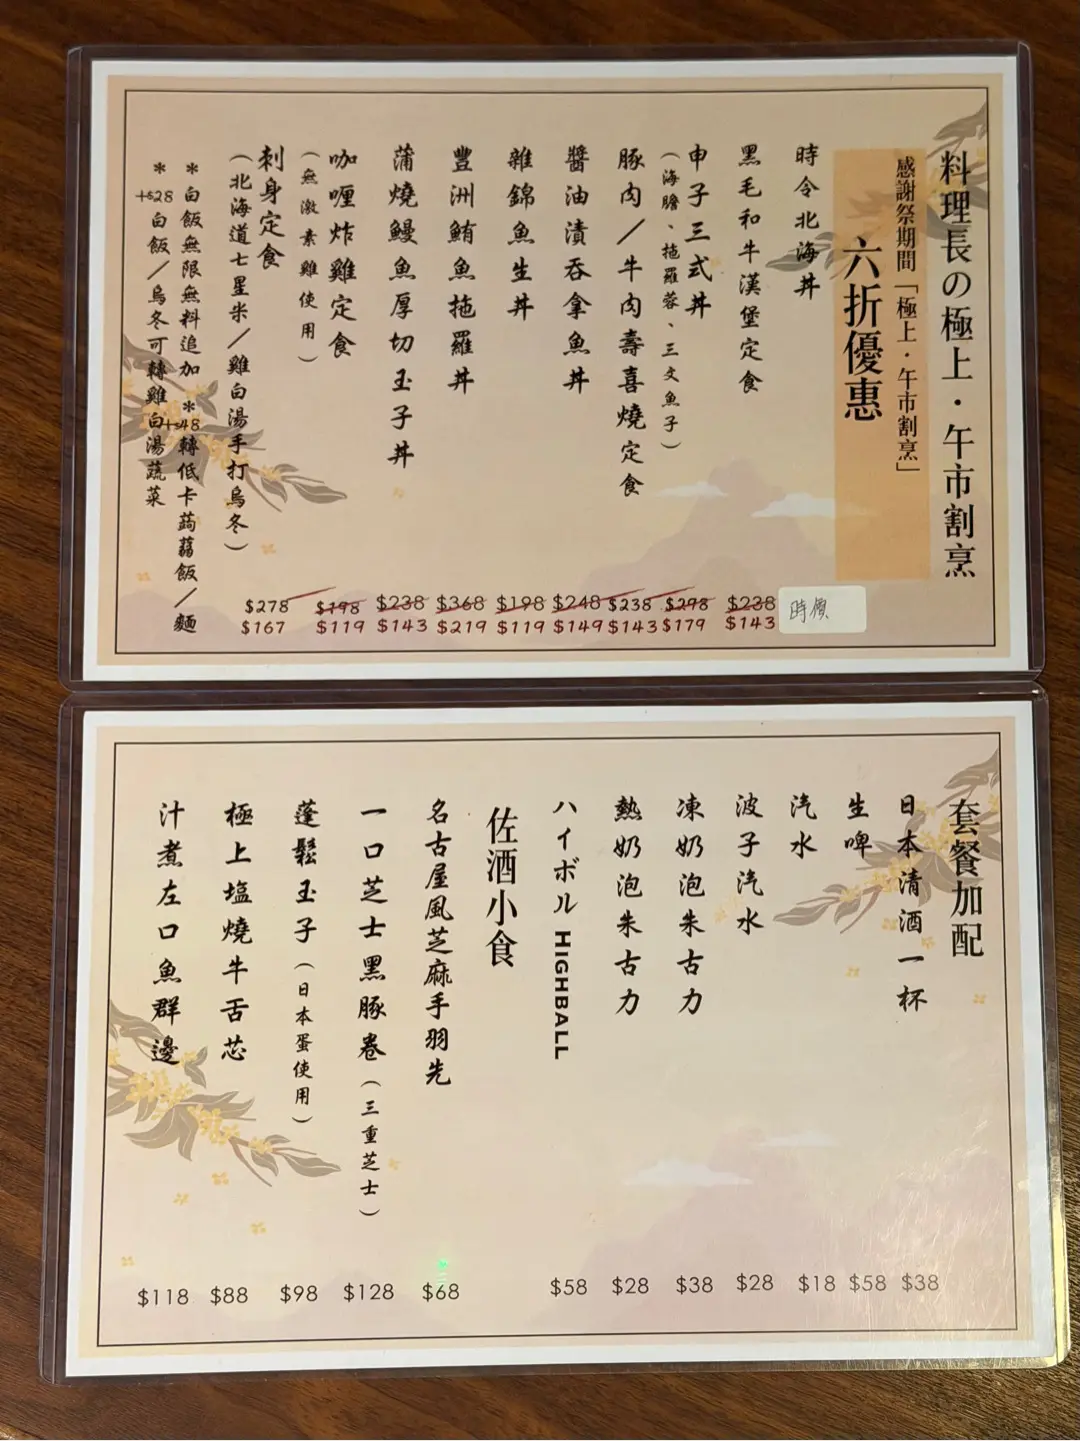 料理長の極上・午市割烹
感謝祭期間「極上・午市割烹」
六折優惠
時令北海丼
時價
黑毛和牛漢堡定食
$238
$143
申子三式丼
（海膽、拖羅蓉、三文魚子）
$298
$179
豚肉／牛肉壽喜燒定食
$238
$143
醬油漬吞拿魚丼
$248
$149
雜錦魚生丼
$198
$119
豐洲鮪魚拖羅丼
$368
$219
蒲燒鰻魚厚切玉子丼
$238
$143
咖喱炸雞定食
（無激素雞使用）
$198
$119
刺身定食
（北海道七星米／雞白湯手打烏冬）
$278
$167
*白飯無限無料追加 *+$48轉低卡蒟蒻飯／麵
*+$28白飯／烏冬可轉雞白湯蔬菜
套餐加配
日本清酒一杯
$38
生啤
$58
汽水
$18
波子汽水
$28
凍奶泡朱古力
$38
熱奶泡朱古力
$28
ハイボル HIGHBALL
$58
佐酒小食
名古屋風芝麻手羽先
$68
一口芝士黑豚卷（三重芝士）
$128
蓬鬆玉子（日本蛋使用）
$98
極上塩燒牛舌芯
$88
汁煮左口魚群邊
$118